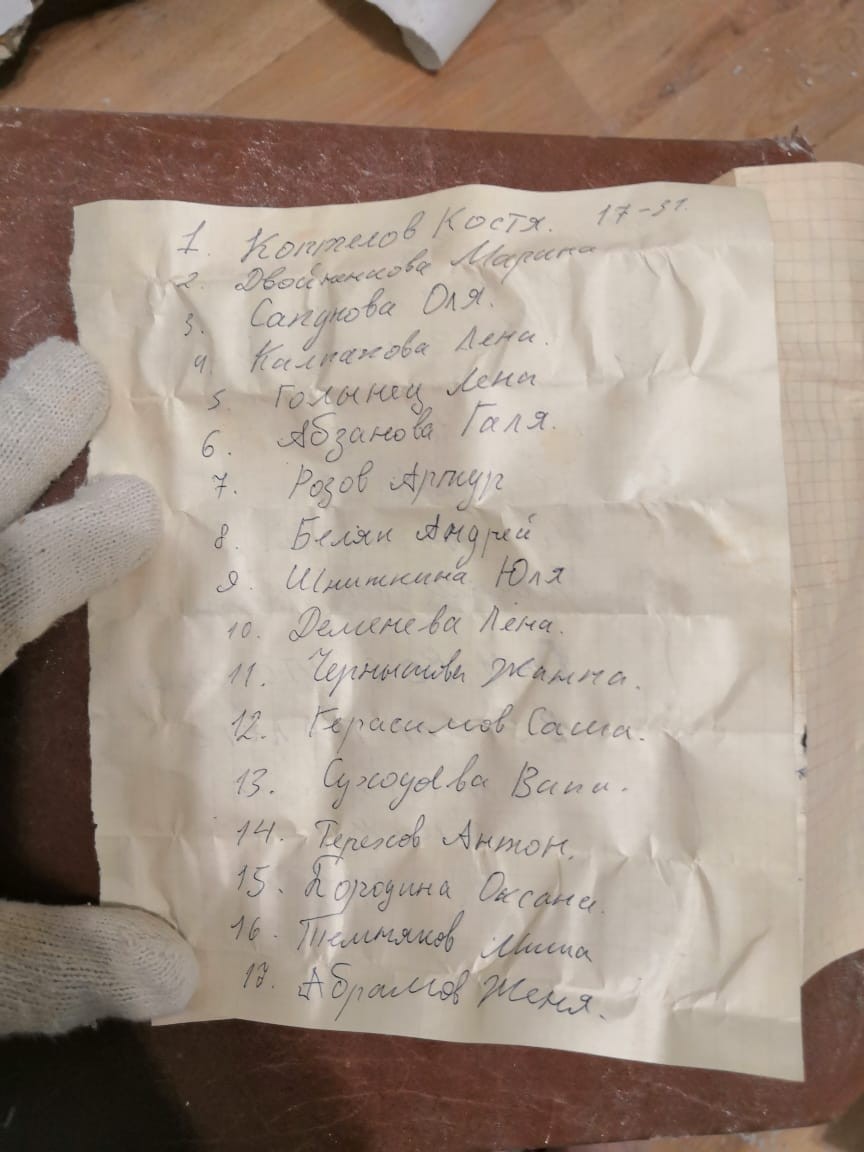 1. Коптелов Костя. 17-31.
2. Марина
3. Сапунова Оля.
4. Калпакова Лена.
5. Голынец Лена
6. Абзанова Галя.
7. Розов Артур
8. Беляк Андрей
9. Шниткина Юля
10. Деменева Лена.
11. Чернышова Жанна.
12. Герасимов Саша.
13.
14. Терехов Антон.
15. Бородина Оксана.
16. Темтяков Миша
17. Абрамов Женя.